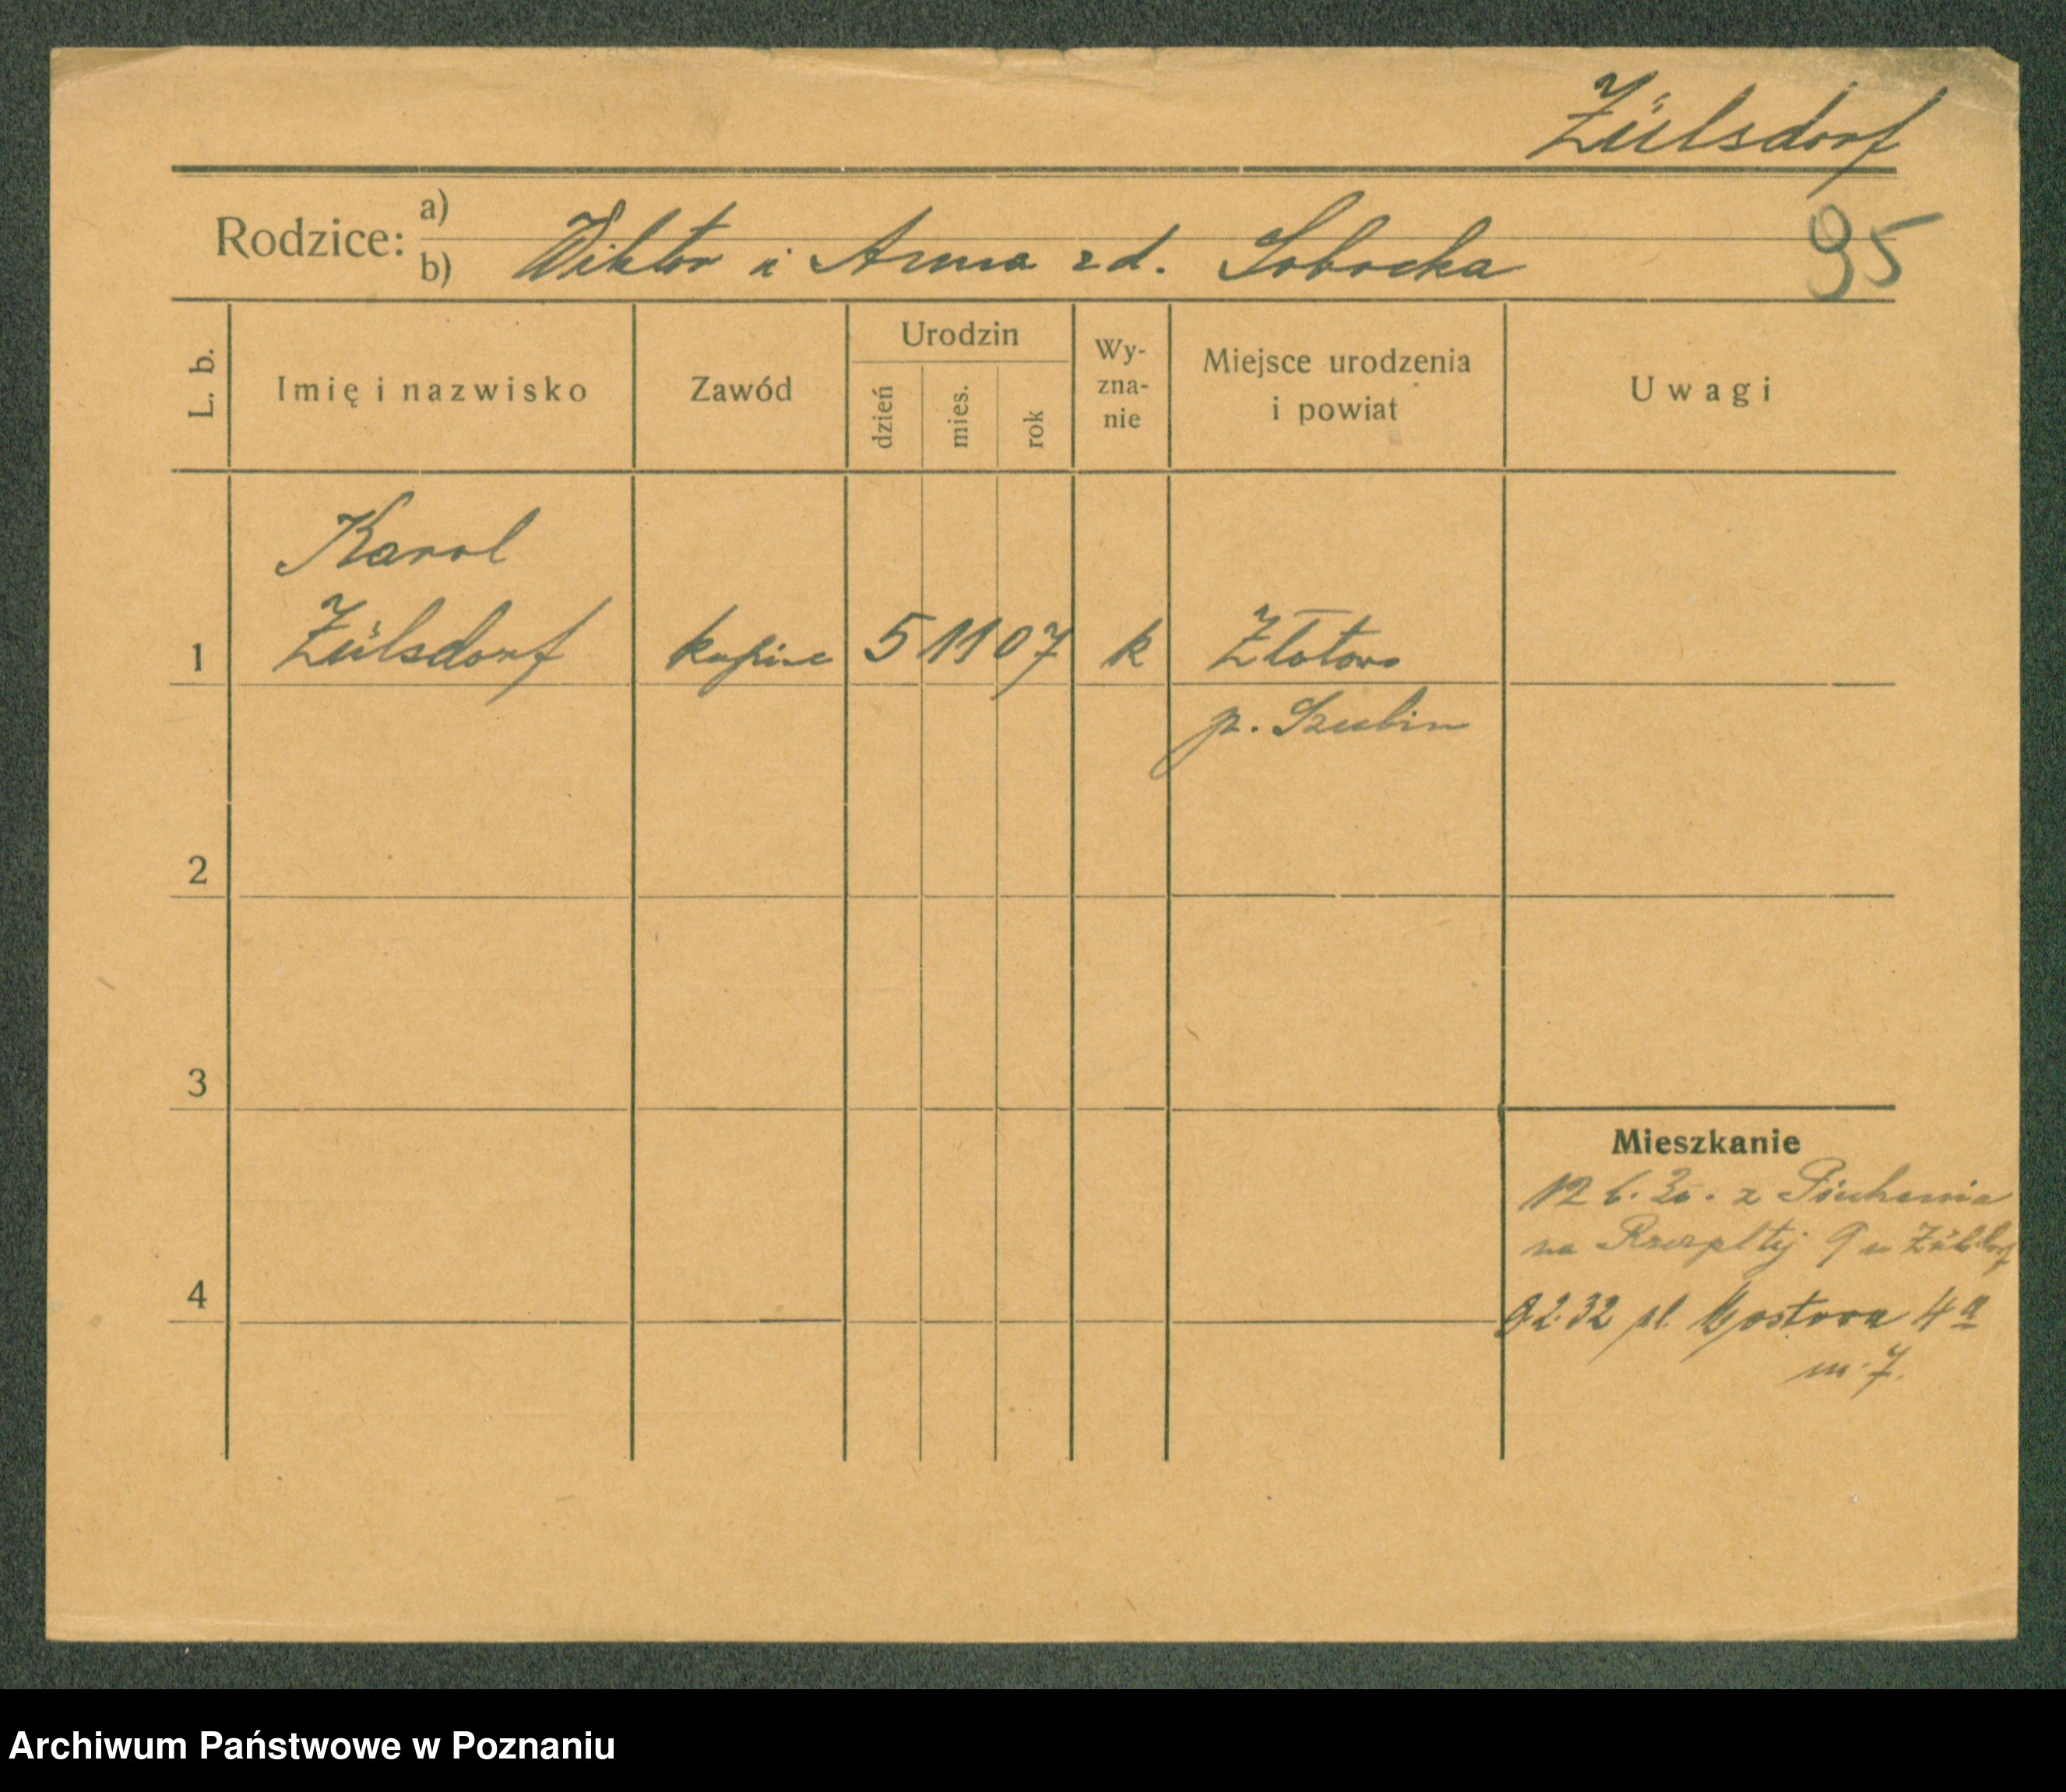 Zülsdorf
Rodzice: a)
b) Wiktor i Anna zd. Sobocka
95
L. b.
Imię i nazwisko
Zawód
Urodzin
dzień
mies.
rok
Wy-
zna-
nie
Miejsce urodzenia
i powiat
Uwagi
Karol
1 Zülsdorf kupiec 5 11 07 k Złotowo
p. Szubin
2
3
4
Mieszkanie
12 6. 30. z
na Rzeczpltej 9 u Zülsdorf
2.32 pl. 4a
m. 7.
Archiwum Państwowe w Poznaniu